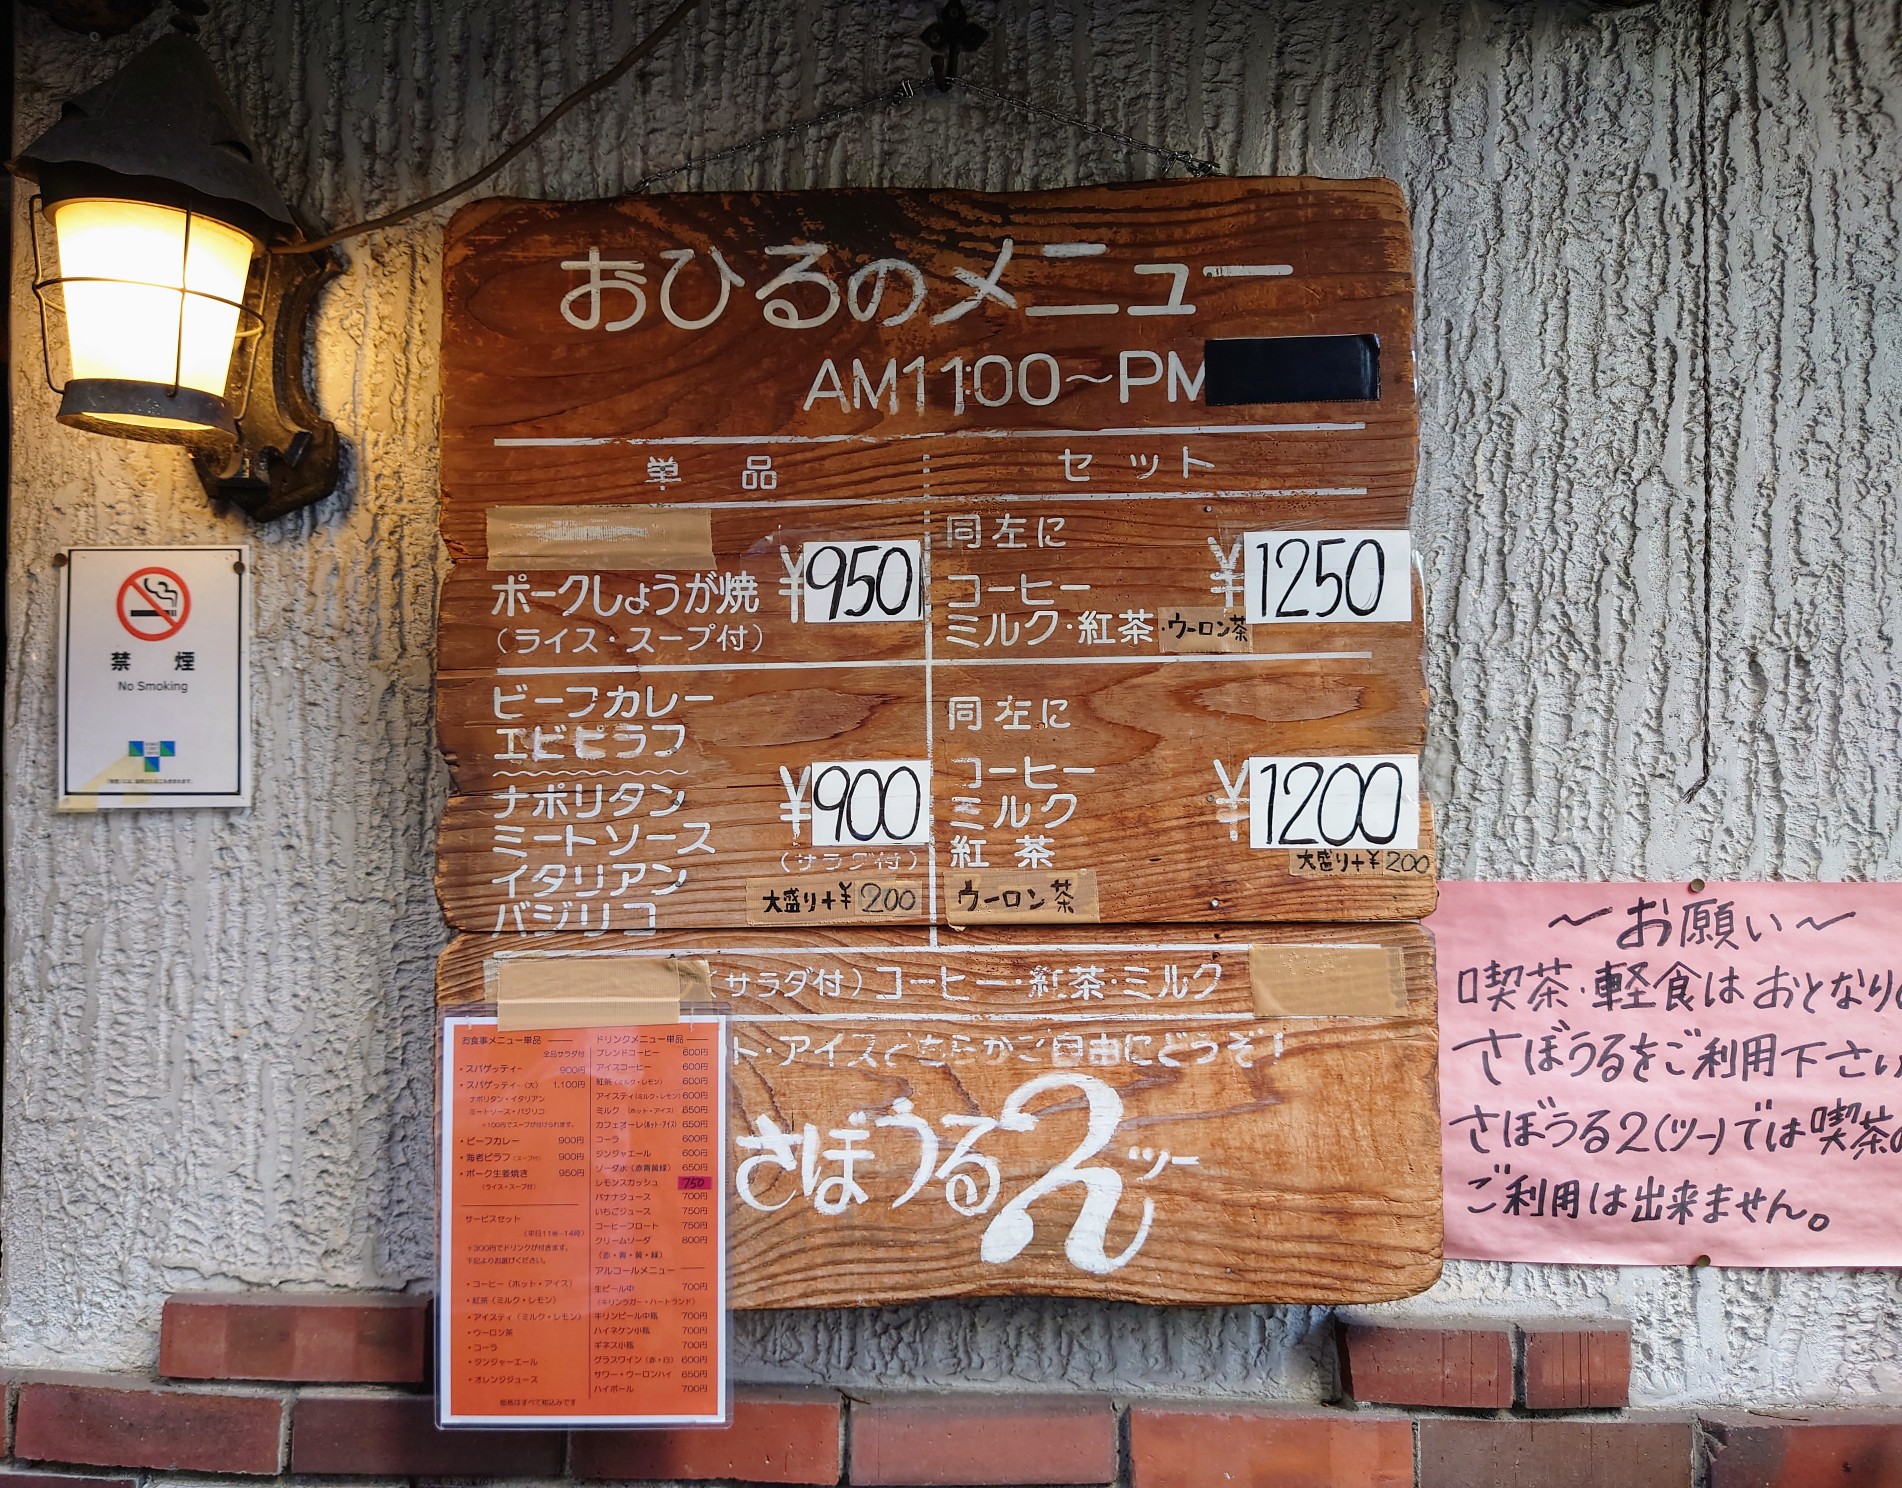 おひるのメニュー
AM11:00～PM
単品
セット
ポークしょうが焼
(ライス・スープ付)
¥950
同左に
コーヒー
ミルク・紅茶・ウーロン茶
¥1250
ビーフカレー
エビピラフ
ナポリタン
ミートソース
イタリアン
バジリコ
¥900
(サラダ付)
大盛り+¥200
同左に
コーヒー
ミルク
紅茶
ウーロン茶
¥1200
大盛り+¥200
(サラダ付)コーヒー・紅茶・ミルク
ト・アイスどちらかご自由にどうぞ!
さぼうる2ツー
禁煙
No Smoking
お食事メニュー単品
全品サラダ付
・スパゲッティー 900円
・スパゲッティー(大) 1,100円
ナポリタン・イタリアン
ミートソース・バジリコ
+100円でスープが付けられます。
・ビーフカレー 900円
・海老ピラフ(スープ付) 900円
・ポーク生姜焼き 950円
(ライス・スープ付)
サービスセット
(平日11時~14時)
+300円でドリンクが付きます。
下記よりお選びください。
・コーヒー(ホット・アイス)
・紅茶(ミルク・レモン)
・アイスティ(ミルク・レモン)
・ウーロン茶
・コーラ
・ジンジャーエール
・オレンジジュース
ドリンクメニュー単品
ブレンドコーヒー 600円
アイスコーヒー 600円
紅茶(ミルク・レモン) 600円
アイスティ(ミルク・レモン) 600円
ミルク (ホット・アイス) 650円
カフェオーレ(ホット・アイス) 650円
コーラ 600円
ジンジャエール 600円
ソーダ水(赤青黄緑) 650円
レモンスカッシュ 750
バナナジュース 700円
いちごジュース 750円
コーヒーフロート 750円
クリームソーダ 800円
(赤・青・黄・緑)
アルコールメニュー
生ビール中 700円
(キリンラガー・ハートランド)
キリンビール中瓶 700円
ハイネケン小瓶 700円
ギネス小瓶 700円
グラスワイン(赤・白) 600円
サワー・ウーロンハイ 650円
ハイボール 700円
価格はすべて税込みです
～お願い～
喫茶・軽食はおとなりの
さぼうるをご利用下さい
さぼうる2(ツー)では喫茶の
ご利用は出来ません。